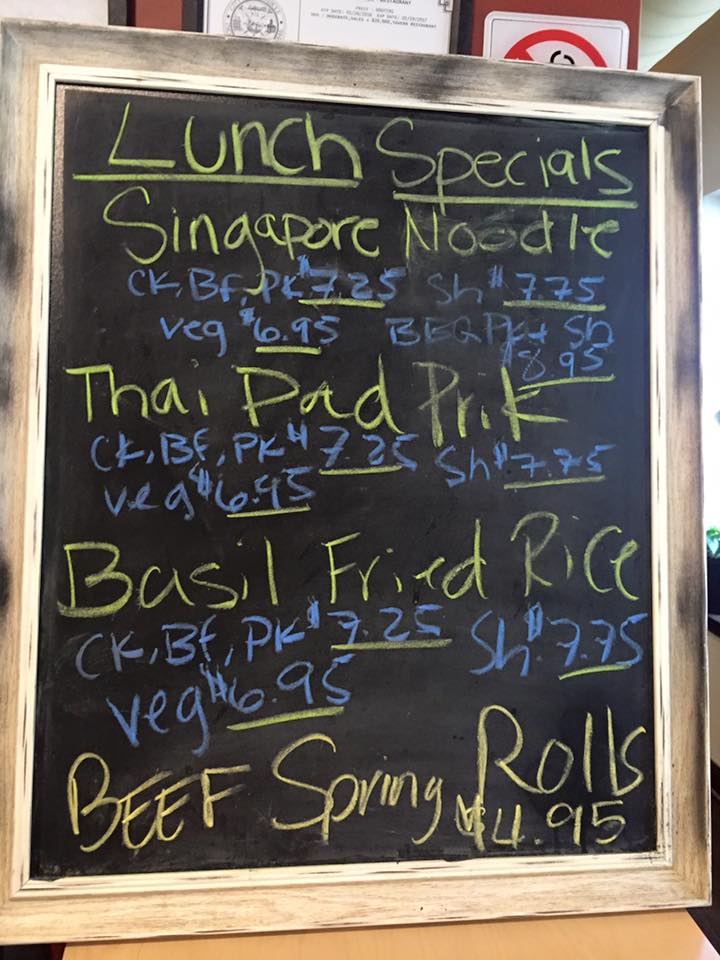 RESTAURANT
Lunch Specials
Singapore Noodle
CK, Bf, PK $7.25 Sh $7.75
veg $6.95 BBQ PK + Sh
$8.95
Thai Pad Prik
CK, Bf, PK $7.25 Sh $7.75
veg $6.95
Basil Fried Rice
CK, Bf, PK $7.25 Sh $7.75
veg $6.95
BEEF Spring Rolls
$4.95